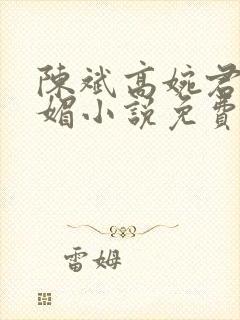 陳斌高婉君
媚小說免費
雷姆